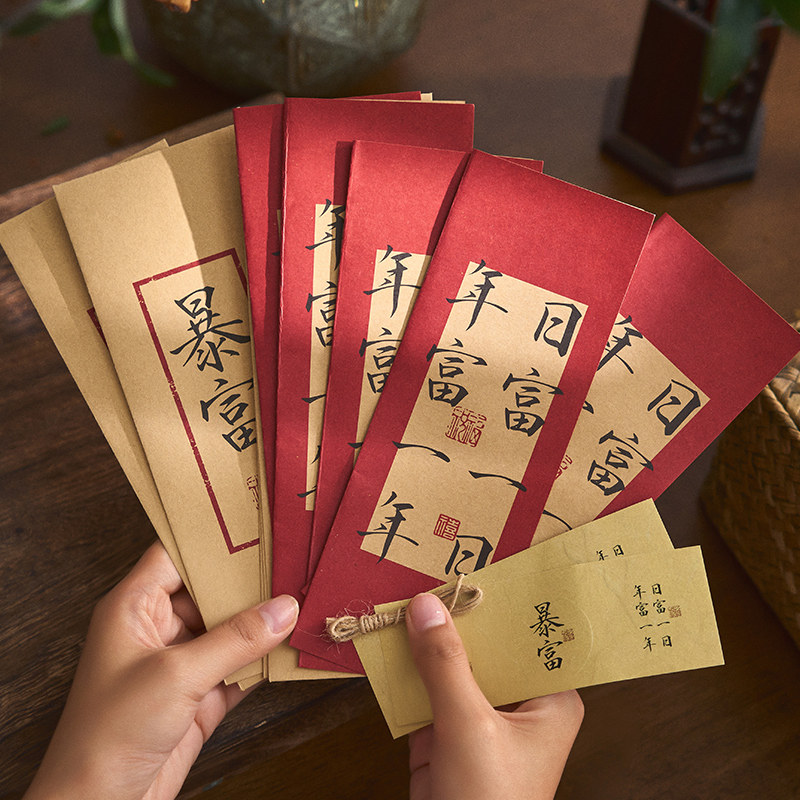 暴富
年富一年
年富一
日富一日
年富一年
日富
年
一
日
年
暴富
日富一日
年富一年